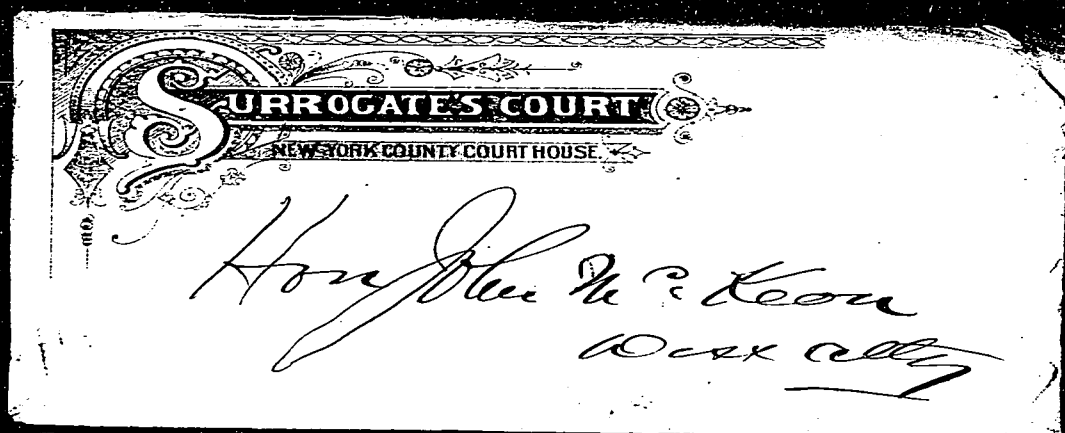 SURROGATE'S COURT
NEW-YORK COUNTY COURT HOUSE.
Hon John McKeon
Dist Atty